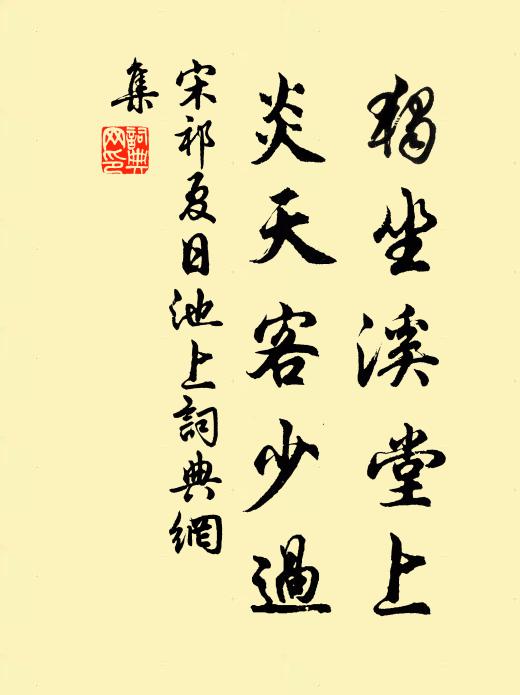 獨坐溪堂上
炎天客少過
宋祁夏日池上詞典網
集
詞典
网印